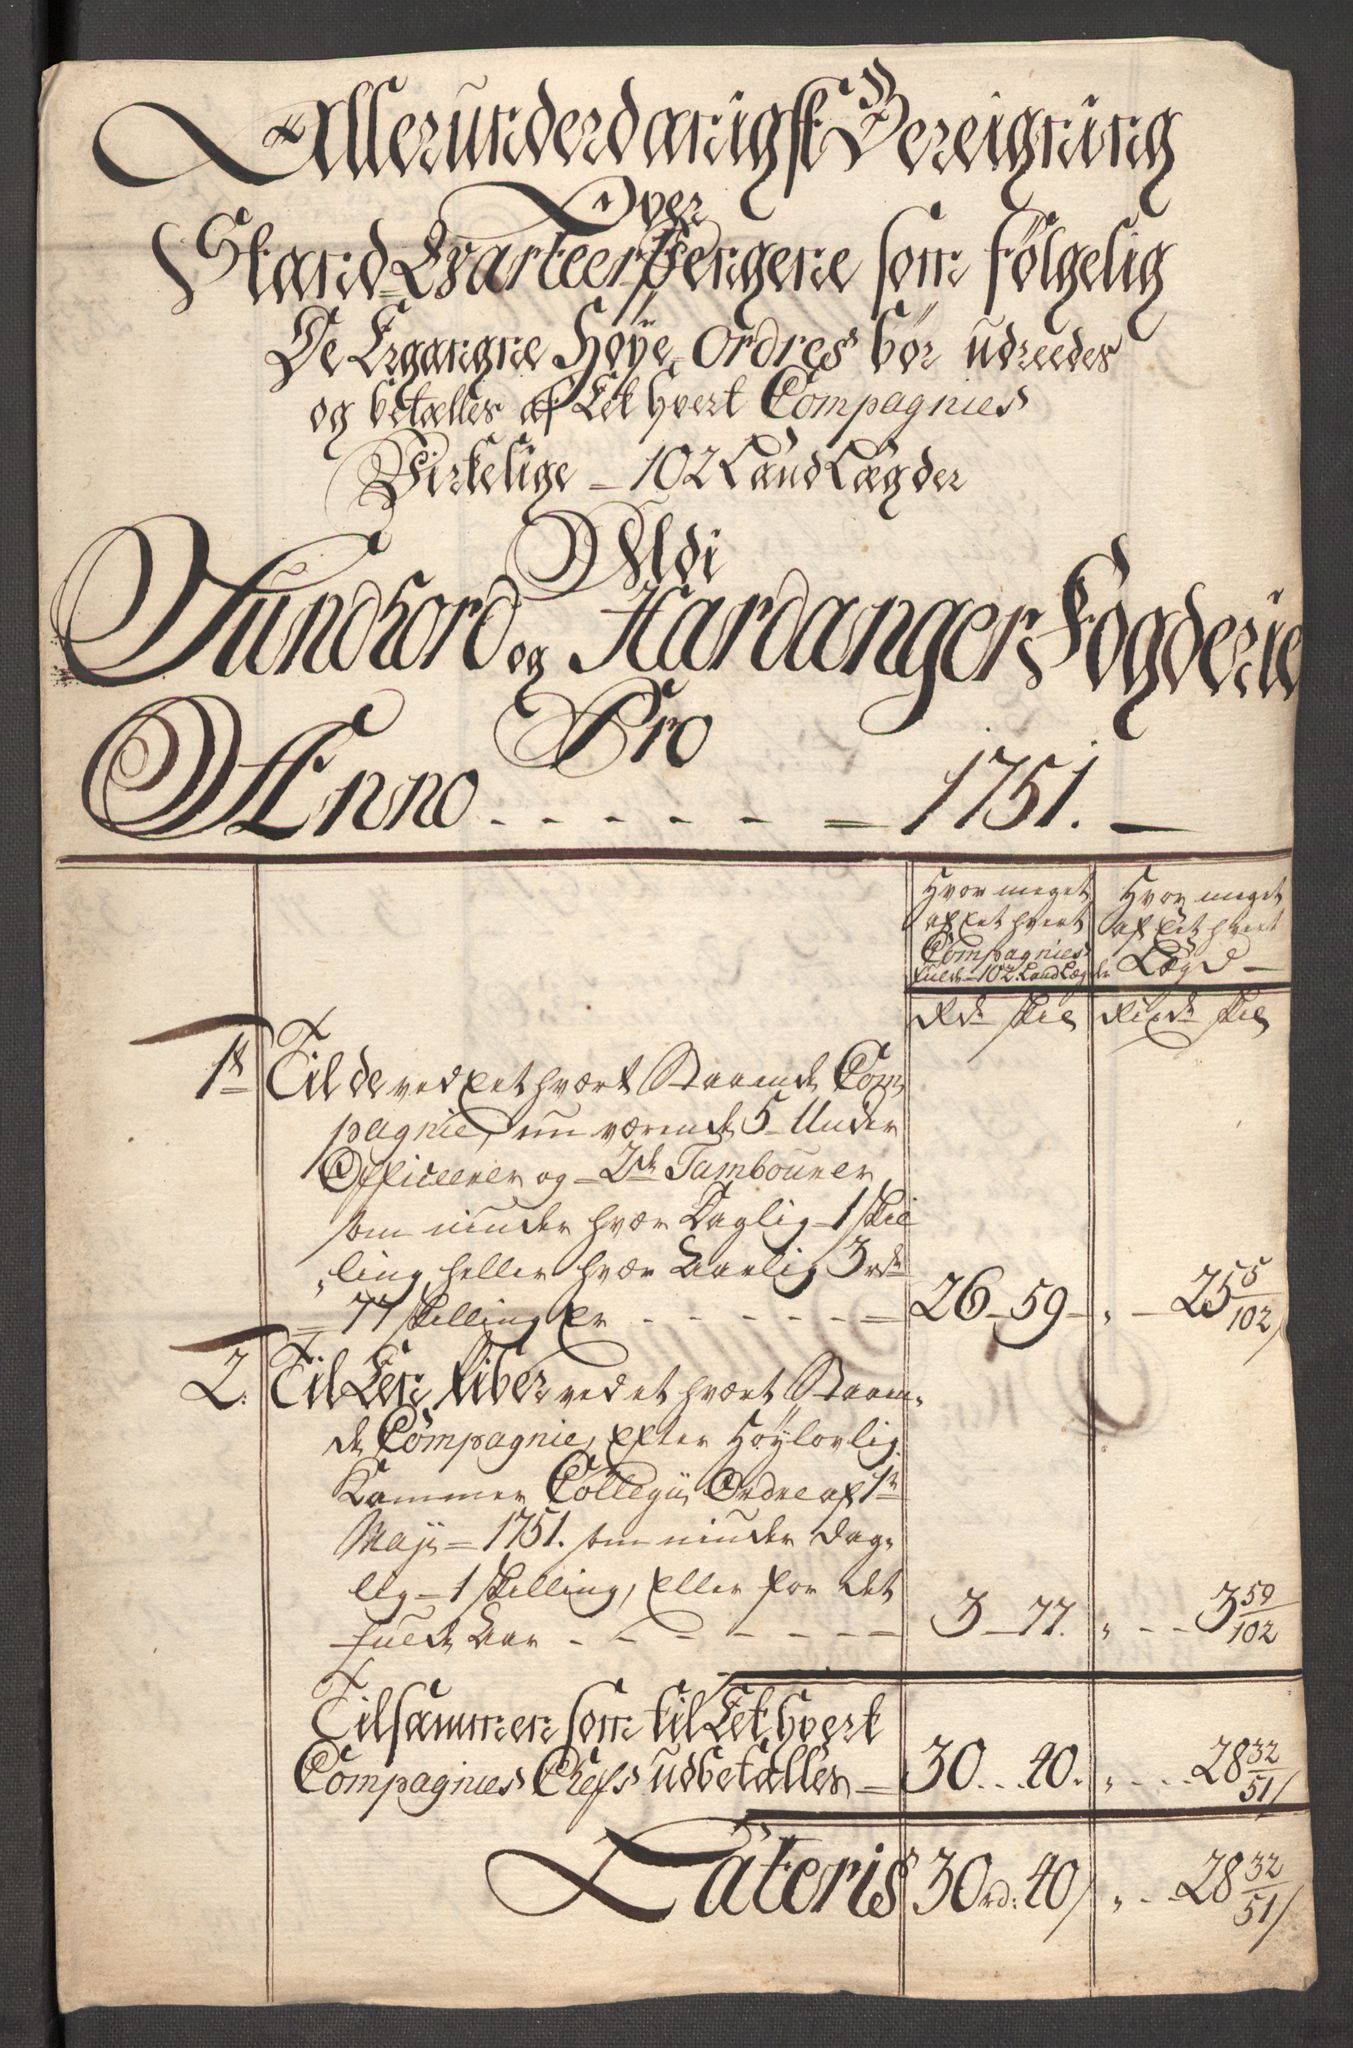 Allerunderdanigst Bereigning
Over
Stand Qvarteer Pengene som følgelig
De Ergangne Høye Ordres bør udreedes
og betalles af Eet hvert Compagnies
Virkelige - 102 Land Lægder
Udi
Sundhord og Hardanger Fogderie
Pro
Anno - - - - - - = 1751. -
Hvor meget af Eet hvert Compagnies fulde 102 Land Lægder
Hvor meget af Eet hvert Lægd -
Rd. skil Rixd. skil
1te Til de ved Eet hvært Staaende Com,
pagnie, nu værende 5 Under
Officerer og - 2de Tambourer
som niuder hvær Daglig - 1 skil
ling, heller hvær Aarlig 3 rd.
= 77 skilling er - - - - - - = 26 - 59 - „ - 25 5/102
2. Til Een Piber ved et hvært Staaen,
de Compagnie, efter Høylovlig
Kammer Collegii, Ordre af 1te
Maji = 1751. som niuder dag,
lig - 1 skilling, eller for det
fulde Aar - - - - - - - 3 - 77. „ - - 3 59/102
Tilsammen som til Eet hvert
Compagnies Chefs udbetalles = 30 . . 40. „ - - - 28 32/51
Lateris 30 rd: 40 „ - - 28 32/51